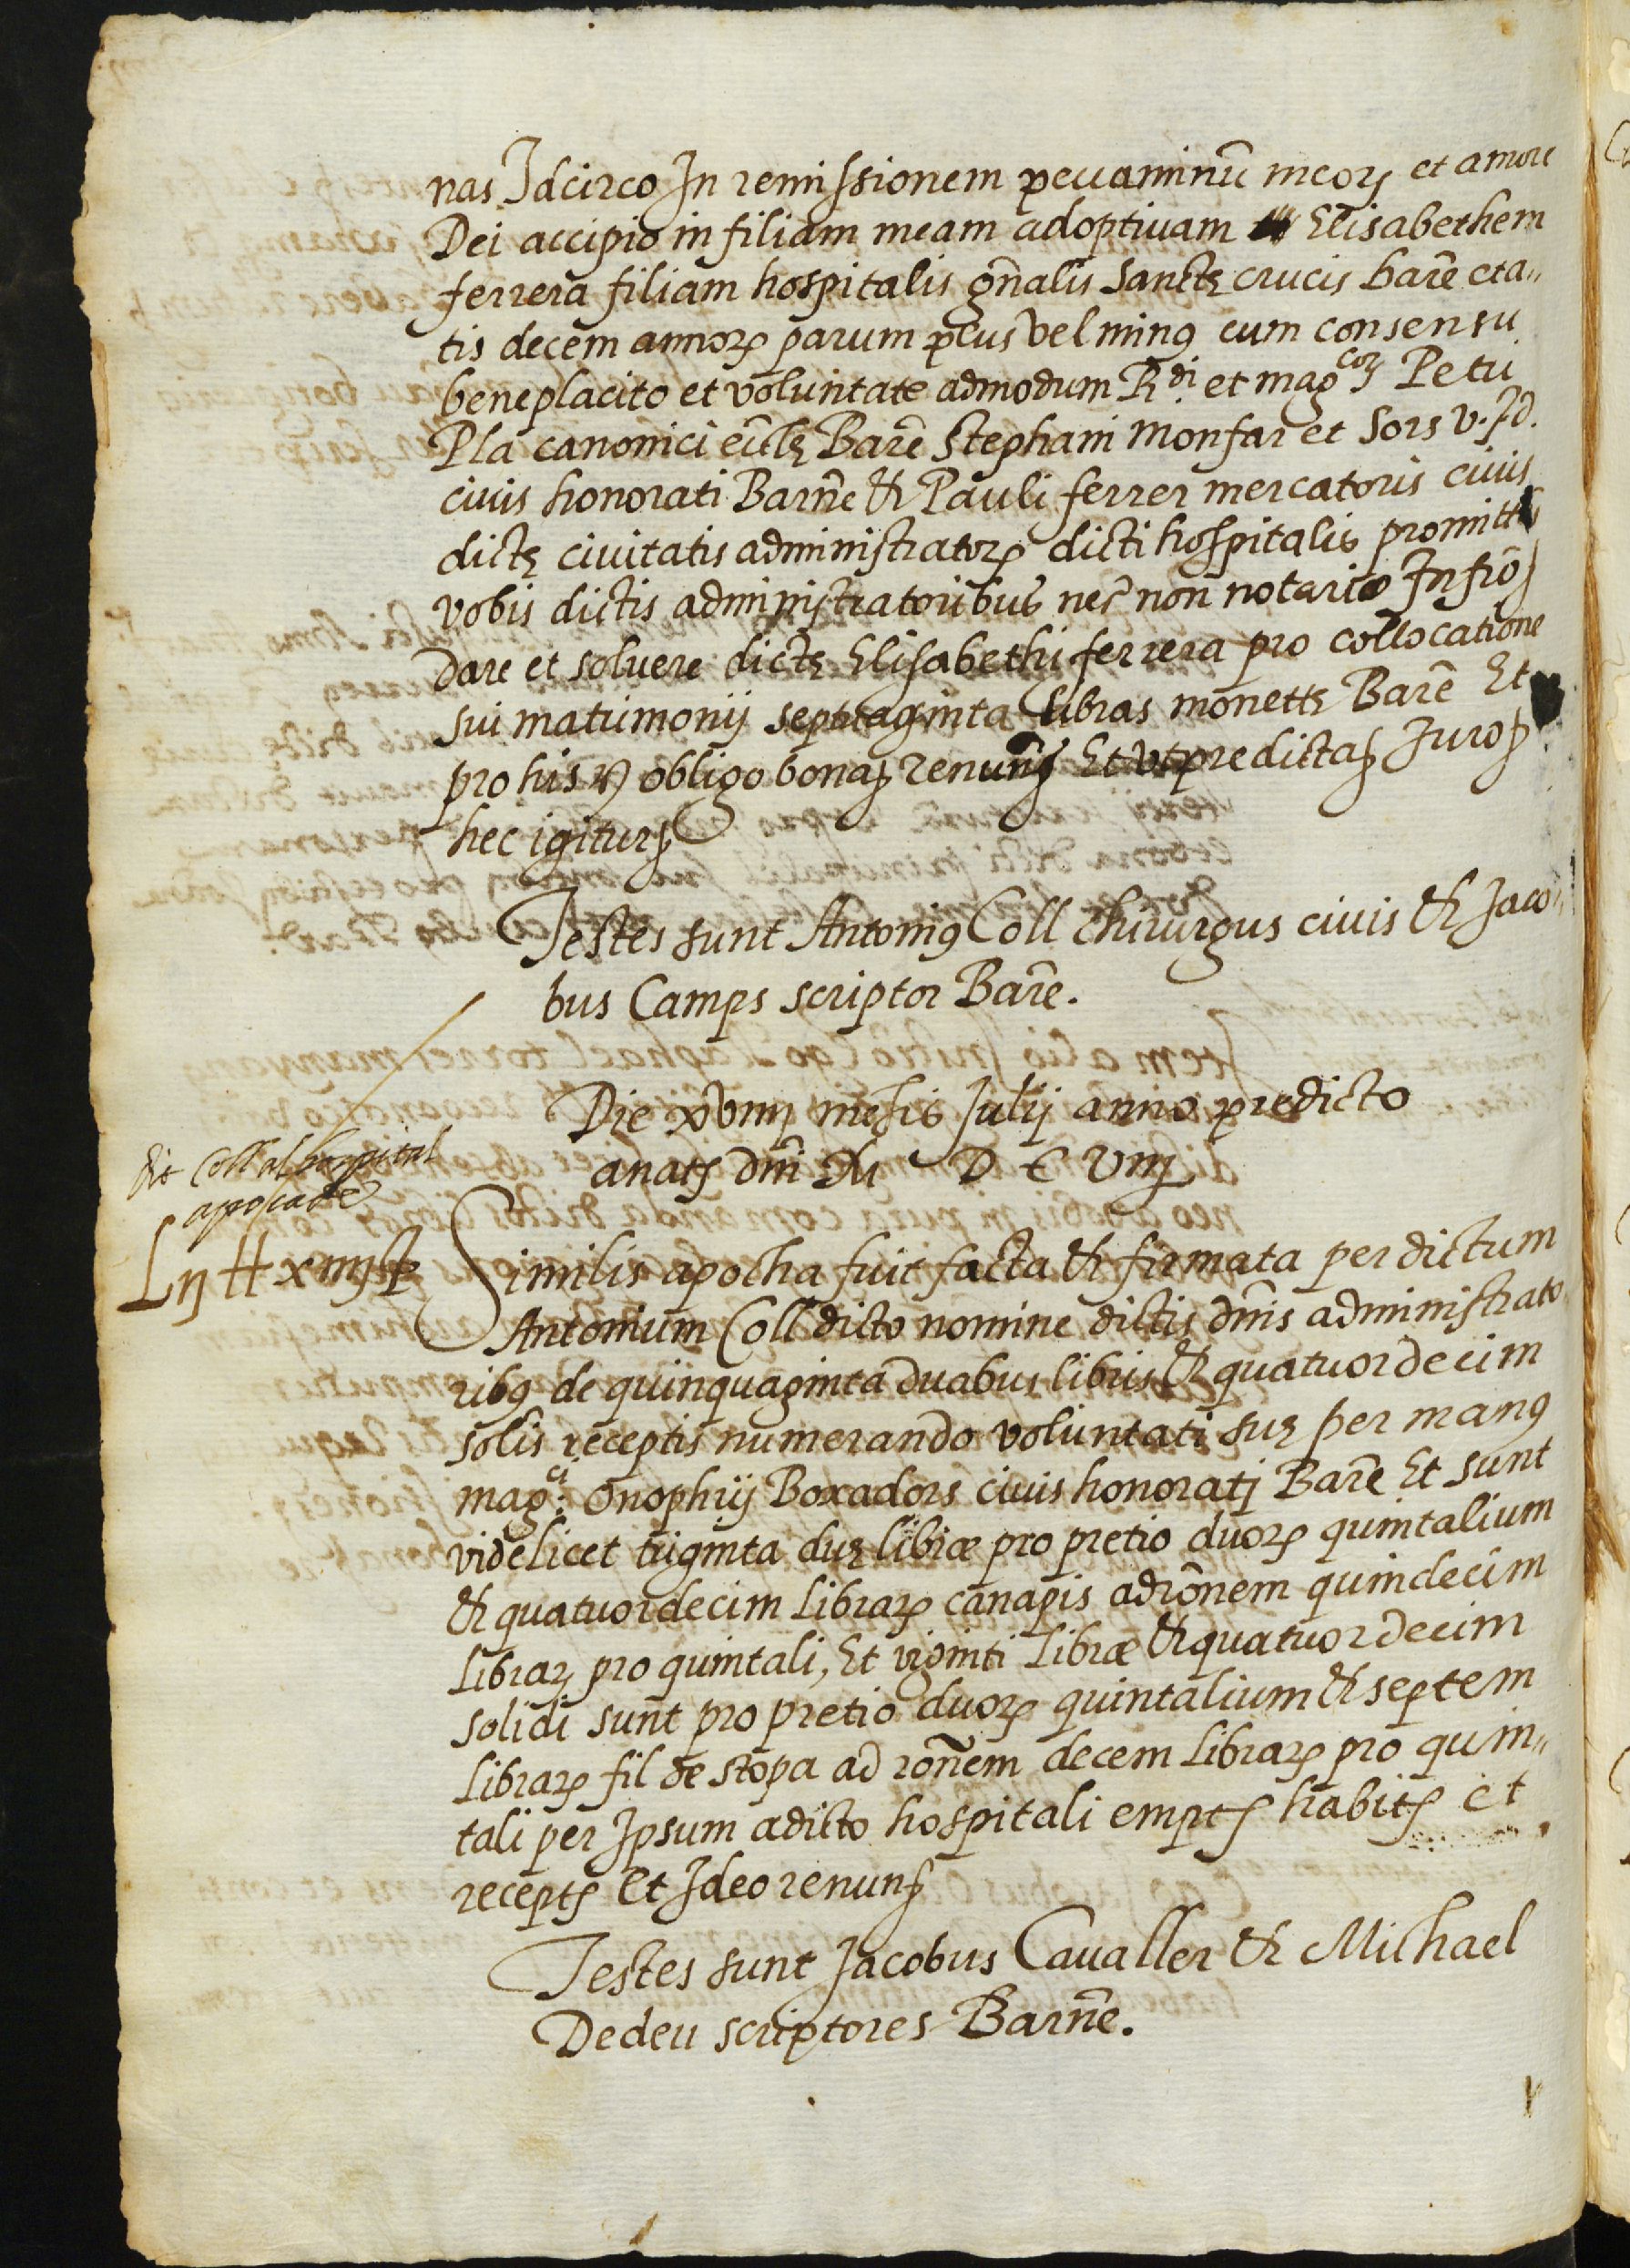 nas Idcirco In remissionem peccaminũ meorꝝ et amore
Dei accipio in filiam meam adoptiuam Elisabethem
ferrera filiam hospitalis gñalis Sanctę crucis barẽ eta„
tis decem annorꝝ parum plus vel minꝰ cum consensu
beneplacito et voluntate admodum R.di et mag.corꝝ Petri
Pla canonici eccłę Barẽ Stephani Monfar et Sors V. J d.
ciuis honorati Barñe et Pauli ferrer mercatoris ciuis
dictę ciuitatis administratorꝝ dicti hospitalis promitto
vobis dictis administratoribus nec non notario Infrõ
Dare et soluere dictę Elisabethi ferrera pro collocatione
sui matrimonij septuaginta libras monettę Barẽ Et
pro his obligo bonaꝫ renunꝫ Et vt predictaꝫ Juroꝫ
hec igiturꝫ
Testes sunt Antoniꝰ Coll chirurgus ciuis et Jaco„
bus Camps scriptor Barẽ.
Die xviiij mesis Julij anno predicto
a natꝫ dñi M D C Viiij
dit Coll al hospital
apoca de
Lij ₶ xiiij ß
Similis apocha fuit facta et firmata per dictum
Antonium Coll dicto nomine dictis dñis administrato
ribꝰ de quinquaginta duabus libris et quatuordecim
solis receptis numerando voluntati suę per manꝰ
mag.ci Onophrij Boxadors ciuis honorati Barẽ Et sunt
videlicet triginta duę libræ pro pretio duorꝝ quintalium
et quatuordecim librarꝝ canapis ad rõnem quindecim
librarꝝ pro quintali, Et viginti libræ et quatuordecim
solidi sunt pro pretio duorꝝ quintalium et septem
librarꝝ fil de stopa ad rõnem decem librarꝝ pro quin„
tali per Ipsum a dicto hospitali emptꝫ habitꝫ et
receptꝫ Et Ideo renunꝫ
Testes sunt Jacobus Caualler et Michael
Dedeu scriptores Barñe.